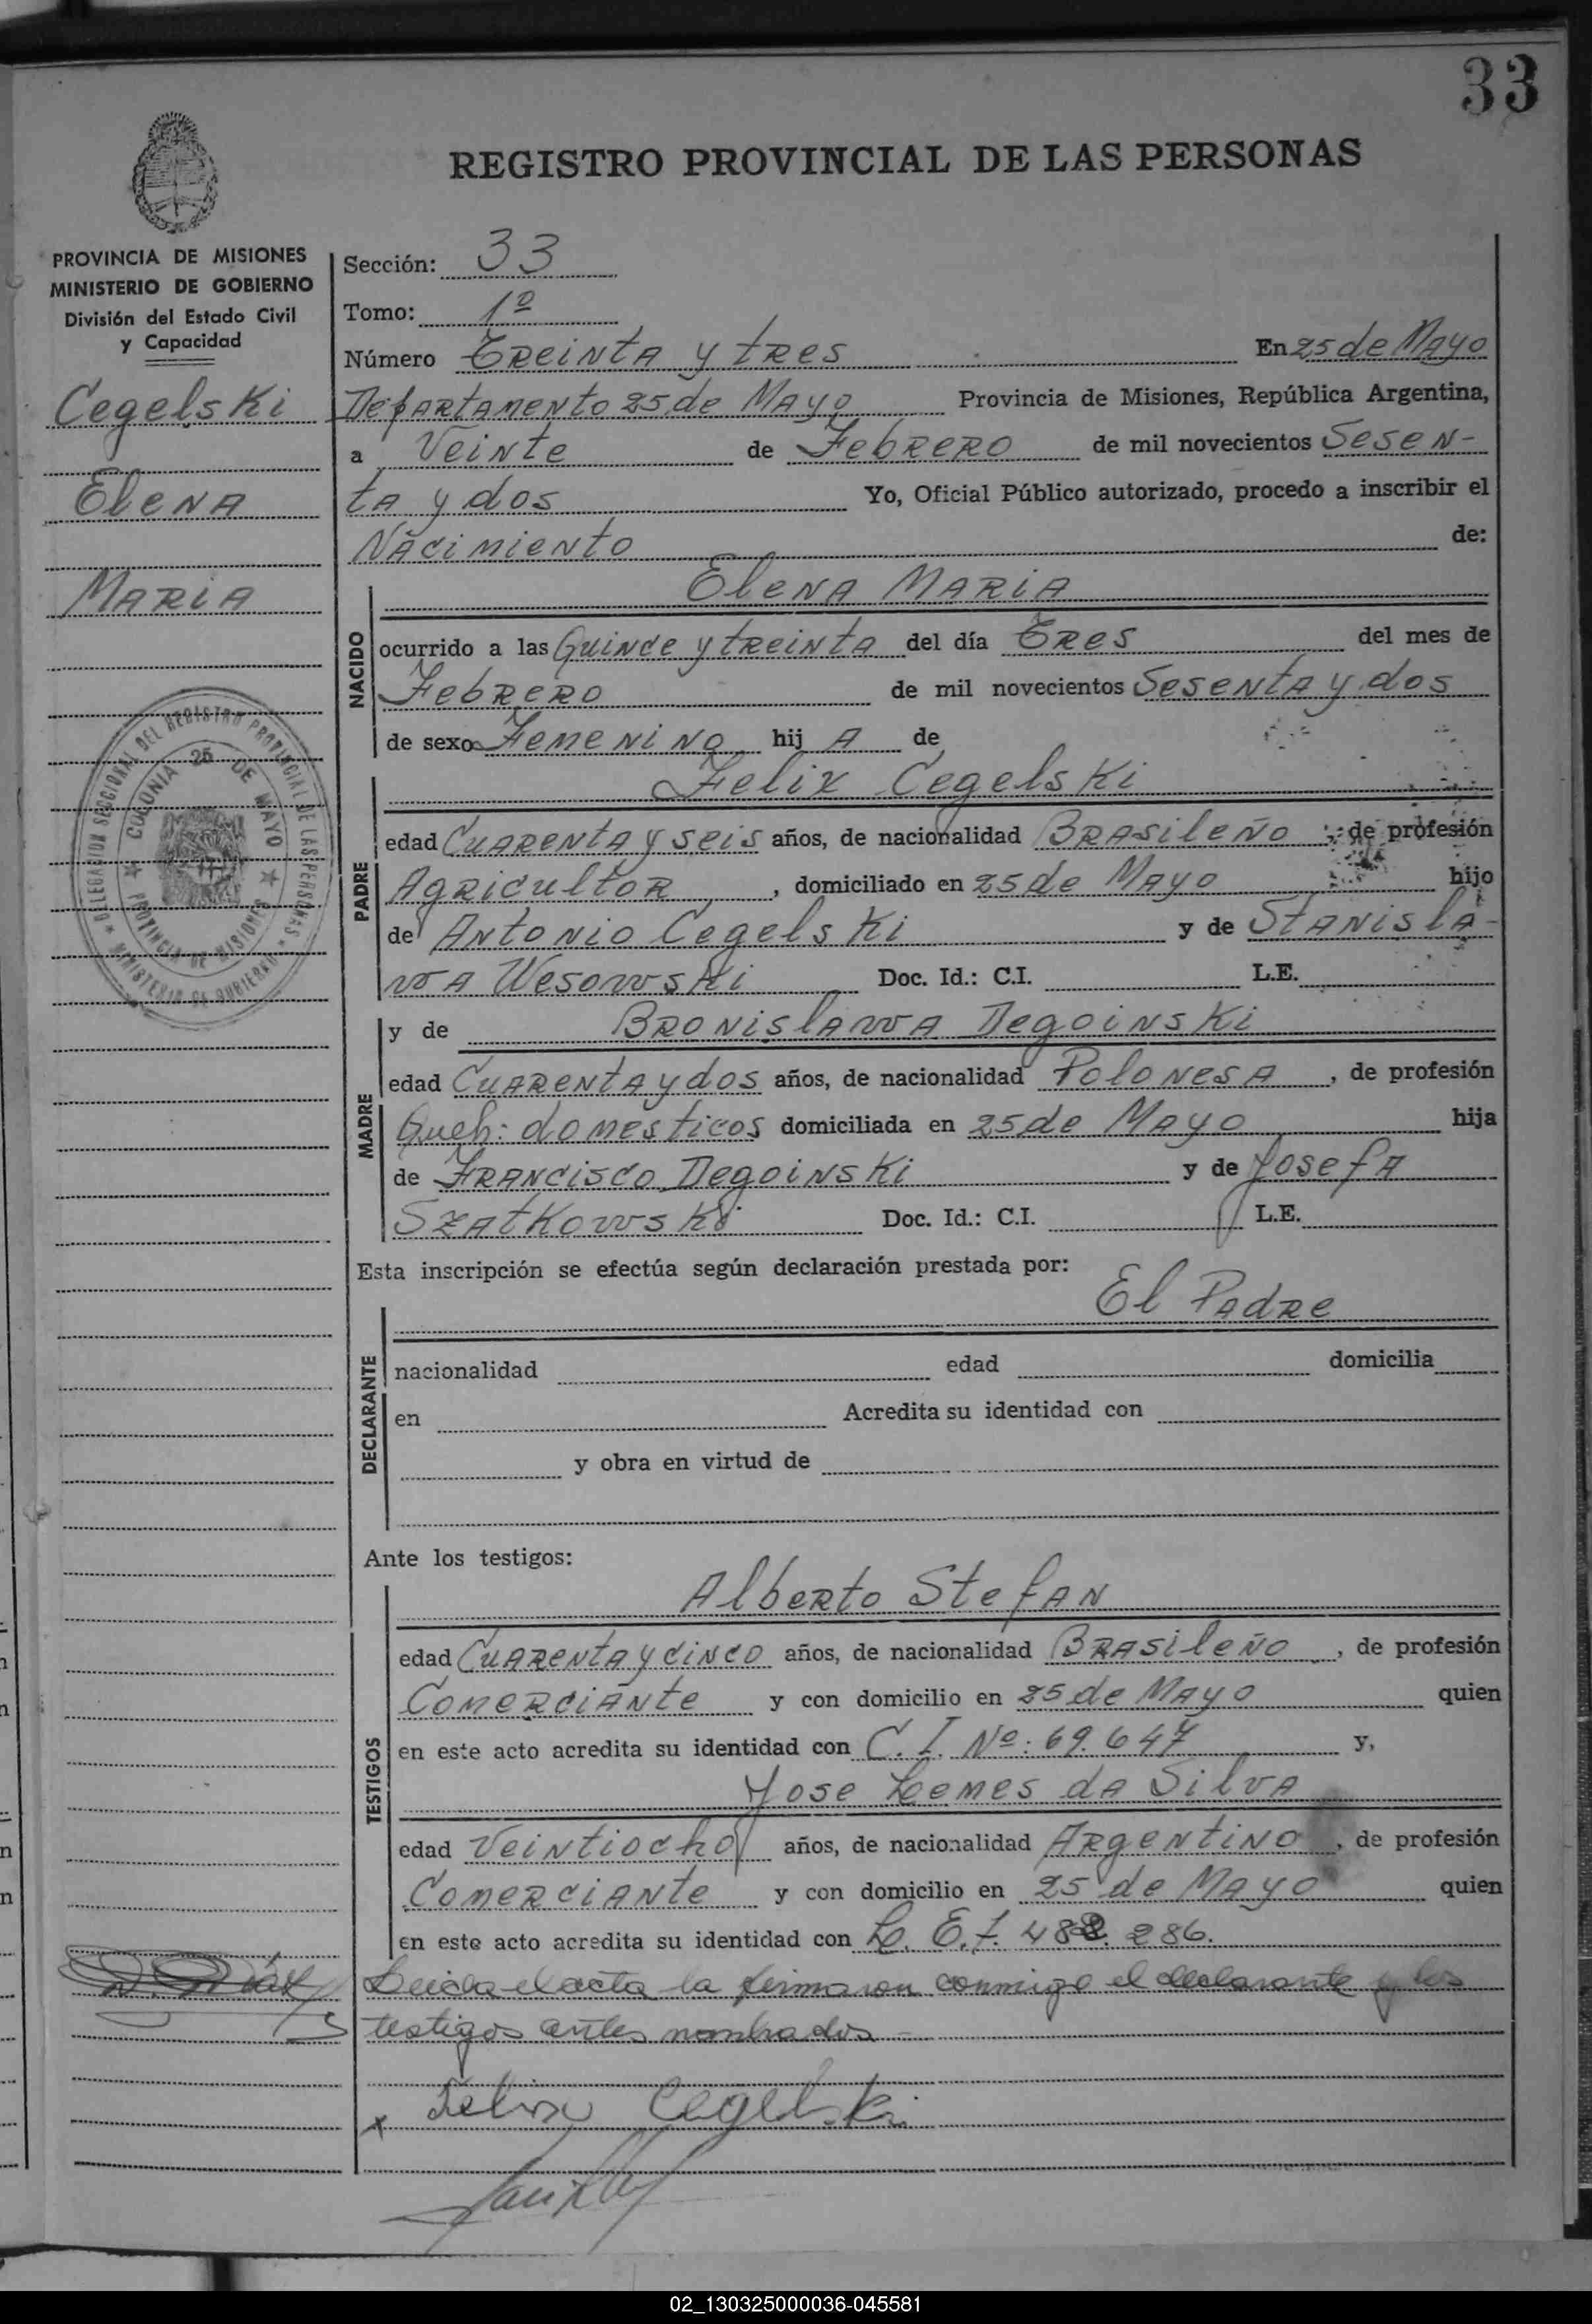 33
REGISTRO PROVINCIAL DE LAS PERSONAS
PROVINCIA DE MISIONES
MINISTERIO DE GOBIERNO
División del Estado Civil
y Capacidad
Cegelski
Elena
Maria
DELEGACION SECCIONAL DEL REGISTRO PROVINCIAL DE LAS PERSONAS
MINISTERIO DE GOBIERNO
COLONIA 25 DE MAYO
PROVINCIA DE MISIONES
Sección: 33
Tomo: 1º
Número Treinta y tres En 25 de Mayo
Departamento 25 de Mayo Provincia de Misiones, República Argentina,
a Veinte de Febrero de mil novecientos Sesen-
ta y dos Yo, Oficial Público autorizado, procedo a inscribir el
Nacimiento de:
NACIDO
Elena Maria
ocurrido a las Quince y treinta del día Tres del mes de
Febrero de mil novecientos Sesenta y dos
de sexo Femenino hij A de
PADRE
Felix Cegelski
edad Cuarenta y seis años, de nacionalidad Brasileño, de profesión
Agricultor, domiciliado en 25 de Mayo hijo
de Antonio Cegelski y de Stanisla-
wa Wesowski Doc. Id.: C.I. L.E.
MADRE
y de Bronislawa Degoinski
edad Cuarenta y dos años, de nacionalidad Polonesa, de profesión
Queh: domesticos domiciliada en 25 de Mayo hija
de Francisco Degoinski y de Josefa
Szatkowski Doc. Id.: C.I. L.E.
Esta inscripción se efectúa según declaración prestada por:
El Padre
DECLARANTE
nacionalidad edad domicilia
en Acredita su identidad con
y obra en virtud de
Ante los testigos:
TESTIGOS
Alberto Stefan
edad Cuarenta y cinco años, de nacionalidad Brasileño, de profesión
Comerciante y con domicilio en 25 de Mayo quien
en este acto acredita su identidad con C. I. Nº: 69.647 y,
Jose Lemes da Silva
edad Veintiocho años, de nacionalidad Argentino, de profesión
Comerciante y con domicilio en 25 de Mayo quien
en este acto acredita su identidad con L. E. 7. 488. 286.
Leida el acta la firmaron conmigo el declarante y los
testigos antes nombrados
x Felix Cegelski
02_130325000036-045581